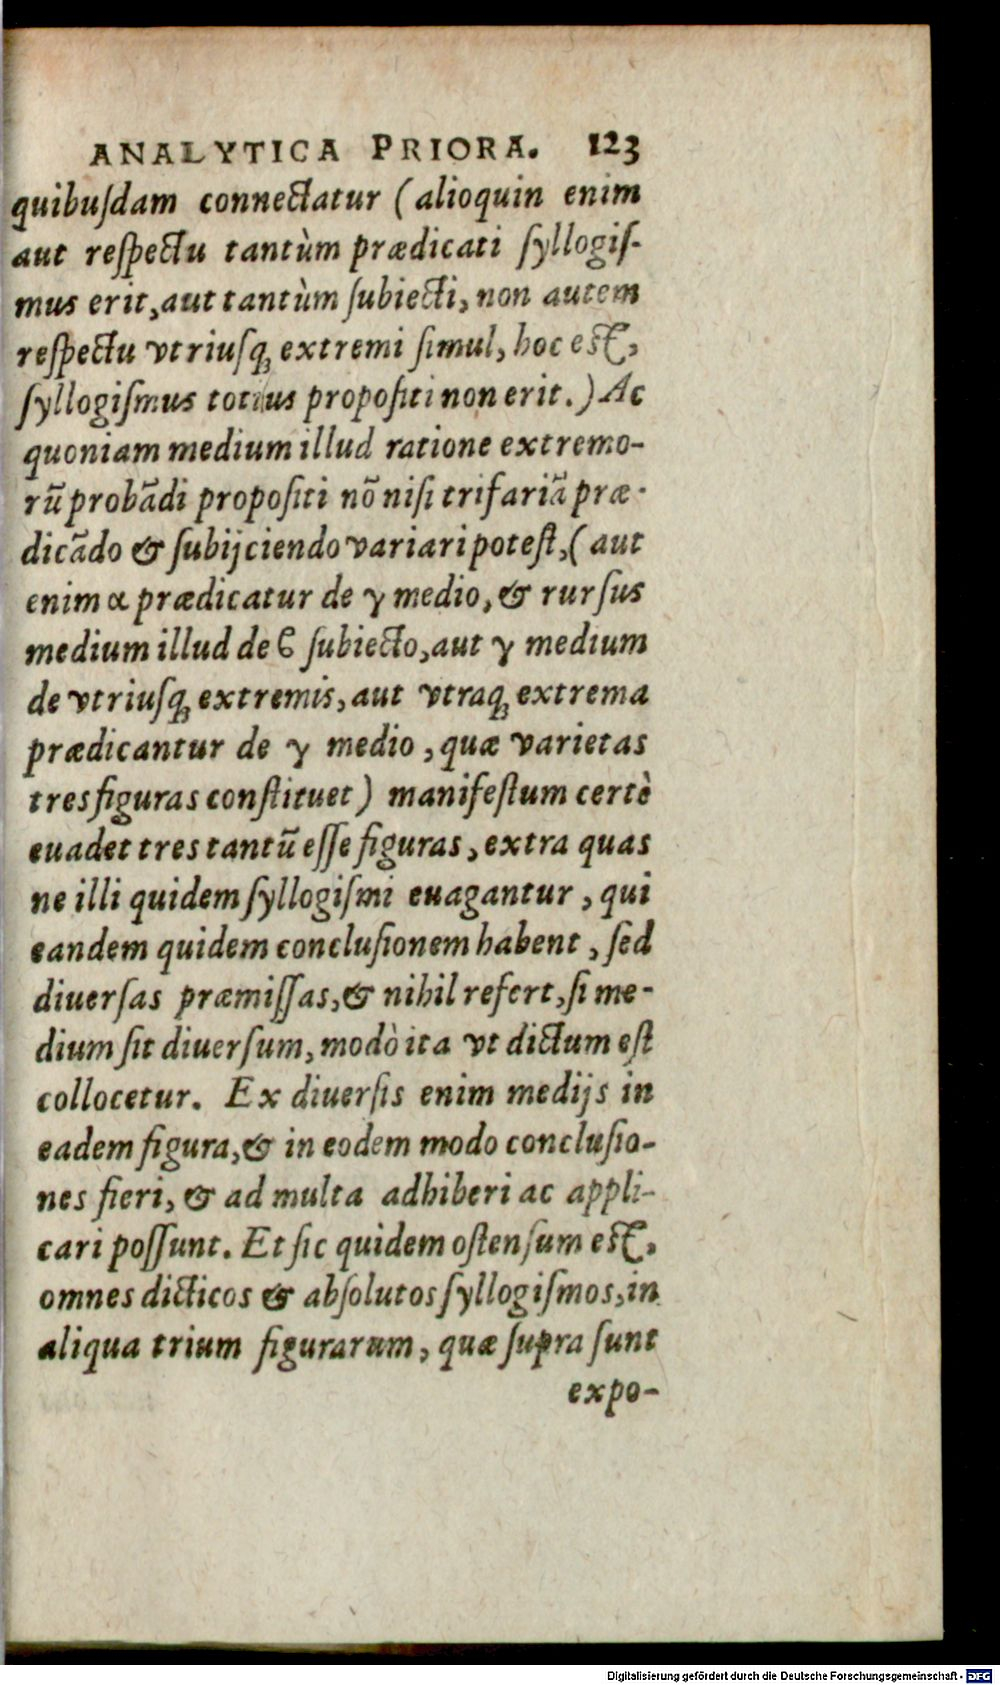 ANALYTICA PRIORA. 123
quibuſdam connectatur (alioquin enim
aut reſpectu tantùm prædicati ſyllogiſ-
mus erit, aut tantùm ſubiecti, non autem
reſpectu vtriuſq; extremi ſimul, hoc eſt,
ſyllogiſmus totius propoſiti non erit.) Ac
quoniam medium illud ratione extremo-
rū probādi propoſiti nō niſi trifariā præ-
dicādo & ſubijciendo variari poteſt, (aut
enim α prædicatur de γ medio, & rurſus
medium illud de ϐ ſubiecto, aut γ medium
de vtriuſq; extremis, aut vtraq; extrema
prædicantur de γ medio, quæ varietas
tres figuras conſtituet) manifeſtum certè
euadet tres tantū eſſe figuras, extra quas
ne illi quidem ſyllogiſmi euagantur, qui
eandem quidem concluſionem habent, ſed
diuerſas præmiſſas, & nihil refert, ſi me-
dium ſit diuerſum, modò ita vt dictum eſt
collocetur. Ex diuerſis enim medijs in
eadem figura, & in eodem modo concluſio-
nes fieri, & ad multa adhiberi ac appli-
cari poſſunt. Et ſic quidem oſtenſum eſt,
omnes dicticos & abſolutos ſyllogiſmos, in
aliqua trium figurarum, quæ ſupra ſunt
expo-
Digitalisierung gefördert durch die Deutsche Forschungsgemeinschaft - DFG